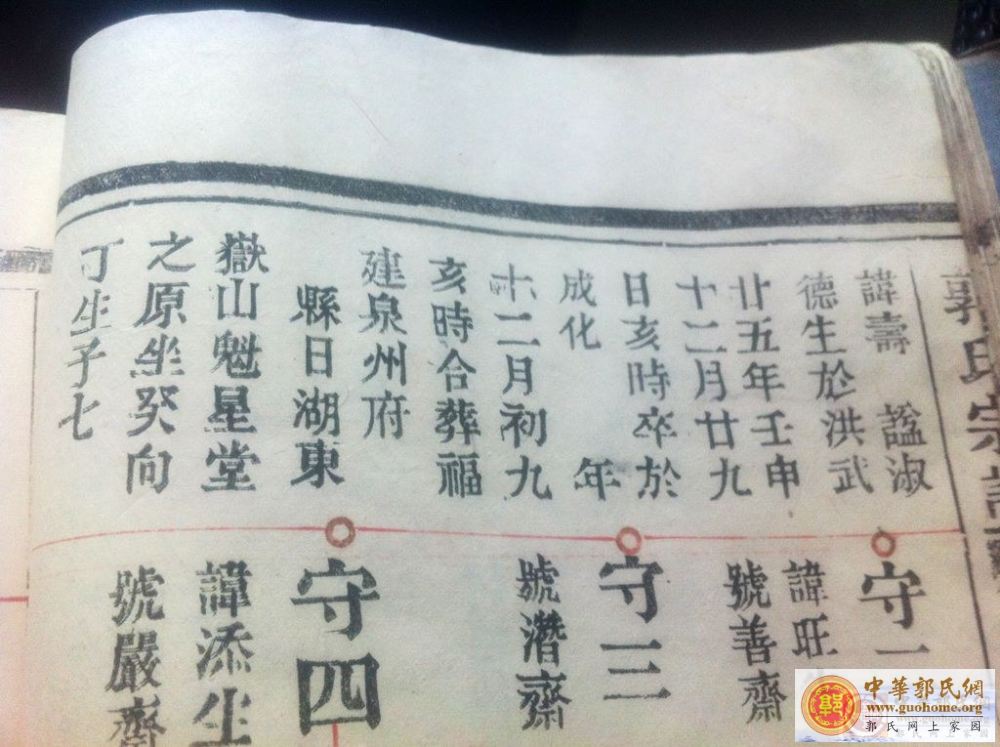 郭氏宗譜
諱壽 諡淑
德生於洪武
廿五年壬申
十二月廿九
日亥時卒於
成化 年
十二月初九
亥時合葬福
建泉州府
縣日湖東
嶽山魁星堂
之原坐癸向
丁生子七
守一
諱旺
號善齋
守三
號潛齋
守四
諱添生
號嚴齋
中華郭氏網
www.guohome.org
郭氏网上家园